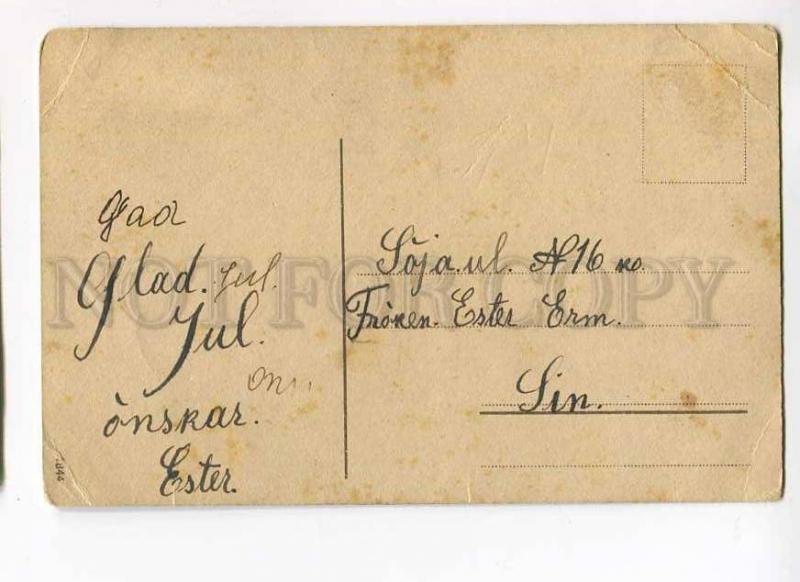 Glad
Glad. Jul.
Jul.
önskar.
Ester.
Söja.ul. N16 no.
Fröken. Ester Erm.
Sin.
.844
NOT FOR COPY